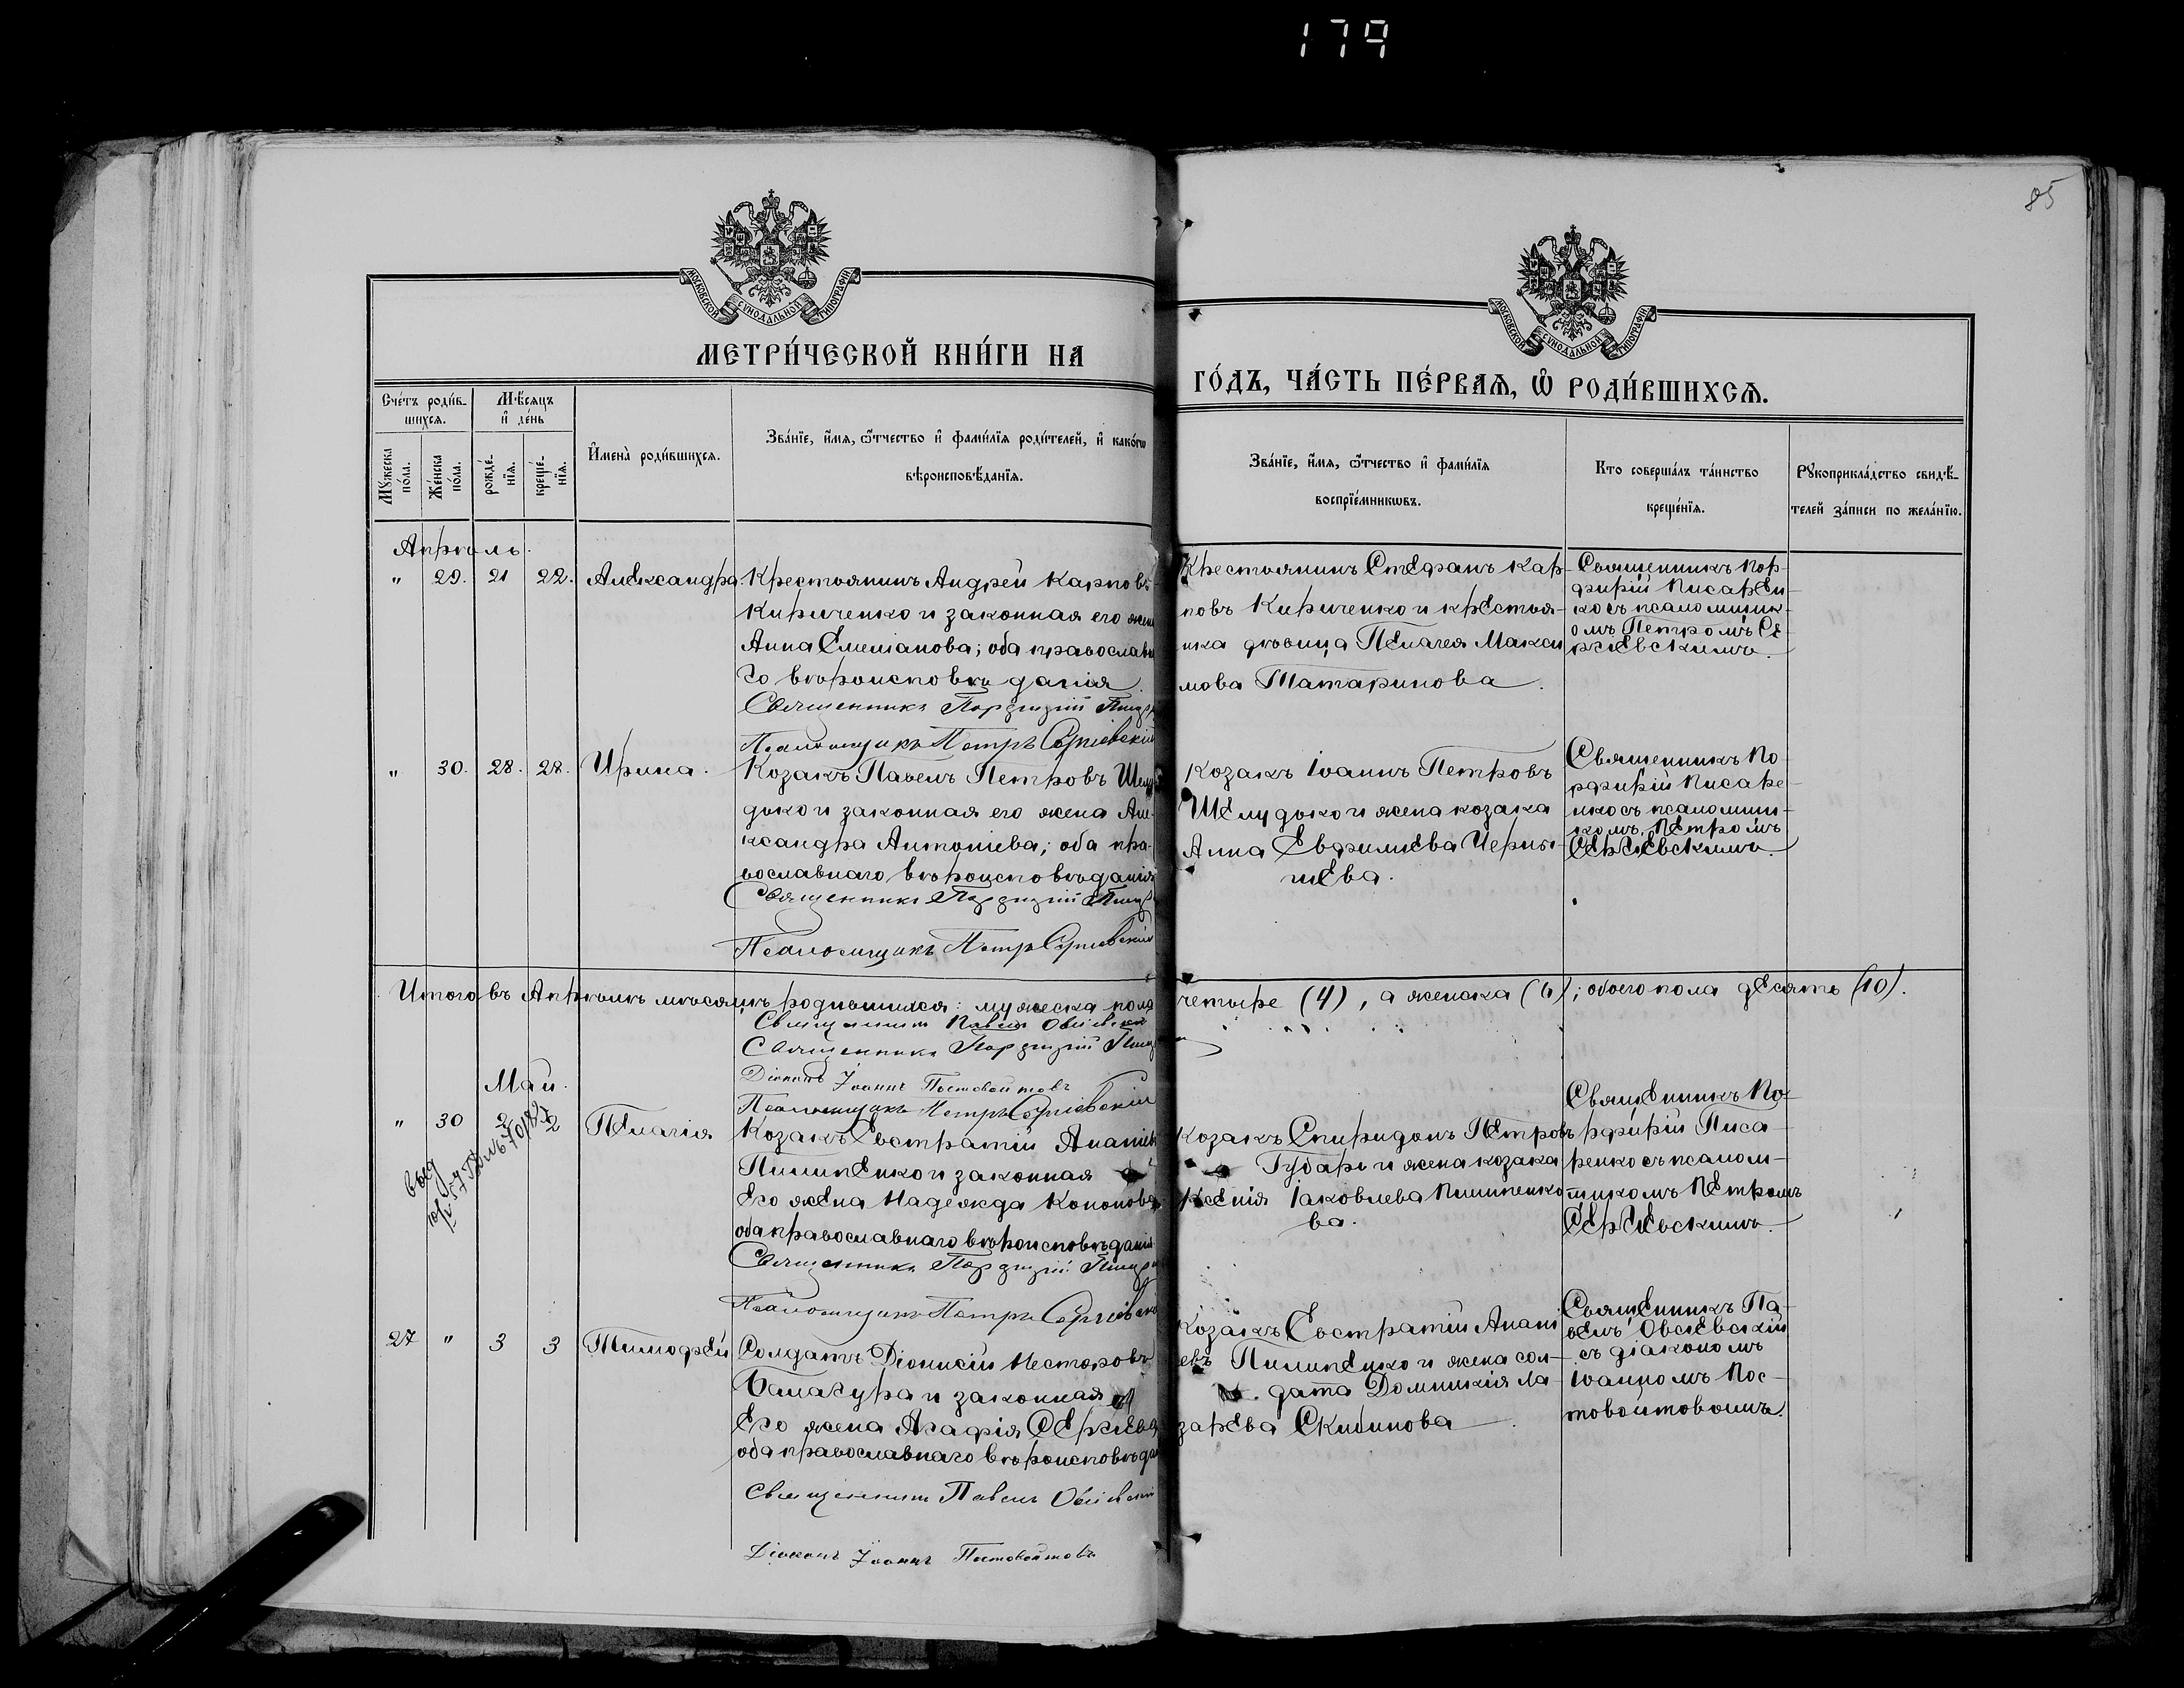 179
85
МОСКОВСКОЙ СѴНОДАЛЬНОЙ ТИПОГРАФІИ
МОСКОВСКОЙ СѴНОДАЛЬНОЙ ТИПОГРАФІИ
МЕТРИ́ЧЕСКОЙ КНИ́ГИ НА
ГО́ДЪ, ЧА́СТЬ ПЕ́РВАѦ, Ѡ РОДИ́ВШИХСѦ.
Счéтъ роди́в-
шихсѧ.
Мѣ́сѧцъ
и де́нь
Мꙋ́жеска
по́ла.
Же́нска
по́ла.
рожде́-
нїѧ.
креще́-
нїѧ.
Имена̀ роди́вшихсѧ.
Зва́нїе, и́мѧ, ѻ҆́тчество и фамилїѧ роди́телей, и како́гѡ
вѣроисповѣ́данїѧ.
Зва́нїе, и́мѧ, ѻ҆́тчество и фами́лїѧ
воспрїе́мникѡвъ.
Кто совершáлъ тáинство
креще́нїѧ.
Рꙋкоприклáдство свидѣ́-
телей зáписи по желáнїю.
Апрѣль.
" 29. 21 22. Александра.
Крестоянинъ Андрей Карповъ
Кириченко и законная его жена
Анна Емельанова; оба православна
го вѣроисповѣданія.
Священникъ Порфирій
Псаломщикъ Петръ Сергіевскій
Крестоянинъ Стефанъ Кар-
повъ Кириченко и крестоя-
нка дѣвица Пелагея Макси
мова Татаринова.
Священникъ Пор-
фирій Писарен-
ко съ псаломщик-
омъ Петромъ Се
ргіевскимъ.
" 30. 28. 28. Ирина.
Козакъ Павелъ Петровъ Шелу
дько и законная его жена Але-
ксандра Антоніева; оба пра-
вославнаго вѣроисповѣданія
Священникъ Порфирій
Псаломщикъ Петръ Сергіевскій
Козакъ Іоаннъ Петровъ
Шелудько и жена козака
Анна Евфиміева Черны-
шева.
Священникъ По-
рфирій Писаре-
нко съ псаломщи-
комъ Петромъ
Сергіевскимъ.
Итого въ Апрѣлѣ мѣсяцѣ родившихся: мужеска пола четыре (4), а женска (6); обоего пола десять (10).
Священникъ Павелъ Овсіевскій
Священникъ Порфирій
Діаконъ Іоаннъ Постовойтовъ
Псаломщикъ Петръ Сергіевскій
Май.
" 30 2 2 Пелагія
Козакъ Евстратій Ананіев
Пилипенко и законная
его жена Надежда Кононова
оба православнаго вѣроисповѣданія
Священникъ Порфирій
Псаломщикъ Петръ Сергіевскій
Козакъ Спиридонъ Петровъ
Губарь и жена козака
Ксенія Іаковлева Пилипенко
ва.
Священникъ По-
рфирій Писа-
ренко съ псалом-
щикомъ Петромъ
Сергіевскимъ.
27 " 3 3 Тимофей
Солдатъ Діонисій Несторовъ
Балагура и законная
его жена Агафія Сергіева
оба православнаго вѣроисповѣдан
Священникъ Павелъ Овсіевскій
Діаконъ Іоаннъ Постовойтовъ
Козакъ Евстратій Анані
евъ Пилипенко и жена сол-
дата Домникія Ла-
зарева Скибинова
Священникъ Па-
велъ Овсіевскій
съ діакономъ
Іоанномъ Пос-
товойтовымъ.